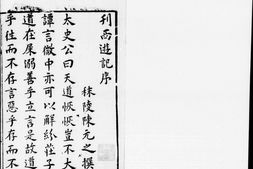 刊西遊記序
秣陵陳元之撰
太史公曰天道恢恢豈不大哉
譚言微中亦可以解紛莊子曰
道在屎溺善乎立言是故道惡
乎往而不存言惡乎存而不可